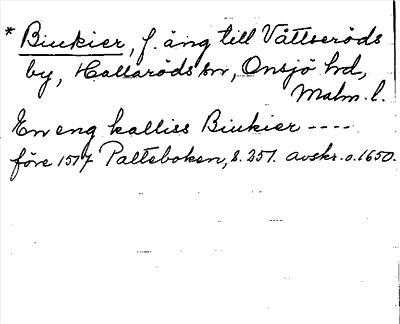 * Biukier, f. äng till Vättseröds
by, Hallaröds sn, Onsjö hd,
Malm. l.
En eng kalliss Biukier ----
före 1517 Palteboken, s. 251. avskr. o. 1650.